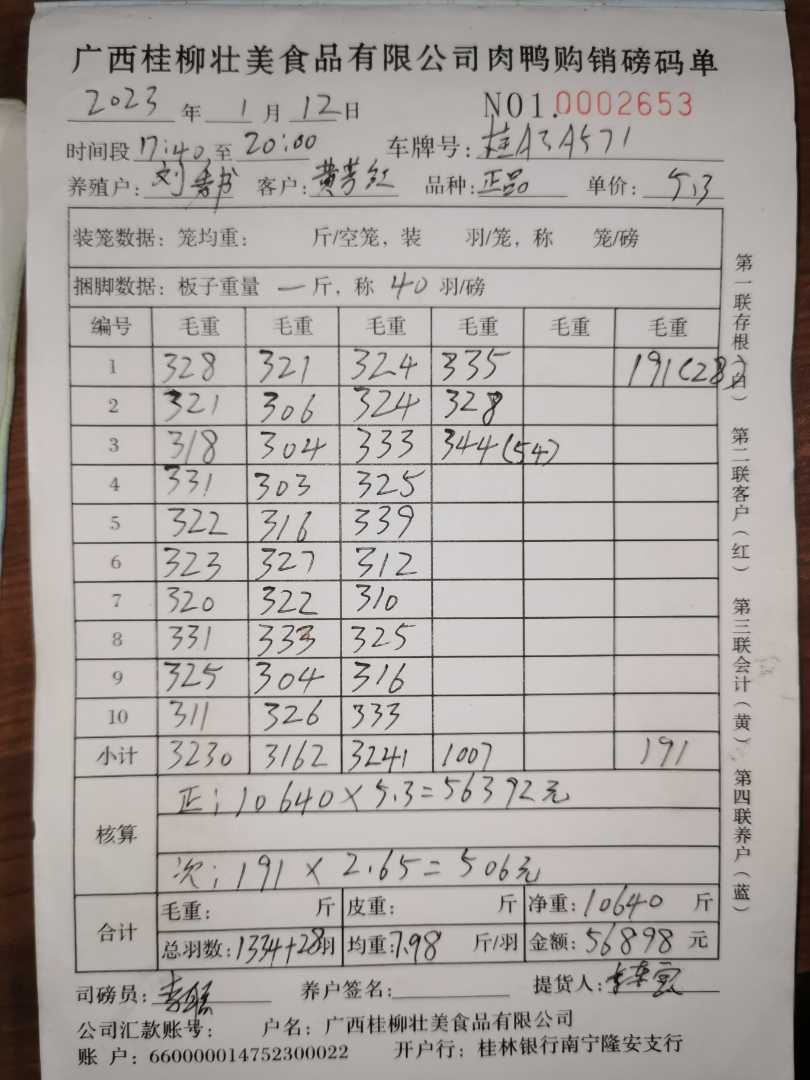 广西桂柳壮美食品有限公司肉鸭购销磅码单
2023 年 1 月 12 日 NO1.0002653
时间段 17:40 至 20:00 车牌号: 桂A3A571
养殖户: 刘 书 客户: 黄芳红 品种: 正品 单价: 5.3
装笼数据: 笼均重: 斤/空笼, 装 羽/笼, 称 笼/磅
捆脚数据: 板子重量 一 斤, 称 40 羽/磅
编号 毛重 毛重 毛重 毛重 毛重 毛重
1 328 321 324 335 191(28)
2 321 306 324 328
3 318 304 333 344(54)
4 331 303 325
5 322 316 339
6 323 327 312
7 320 322 310
8 331 333 325
9 325 304 316
10 311 326 333
小计 3230 3162 3241 1007 191
核算
正: 10640×5.3=56392元
次: 191×2.65=506元
合计
毛重: 斤 皮重: 斤 净重: 10640 斤
总羽数: 1334+28羽 均重: 7.98 斤/羽 金额: 56898 元
司磅员: 李 养户签名: 提货人:
公司汇款账号: 户名: 广西桂柳壮美食品有限公司
账 户: 660000014752300022 开户行: 桂林银行南宁隆安支行
第一联存根(白)
第二联客户(红)
第三联会计(黄)
第四联养户(蓝)